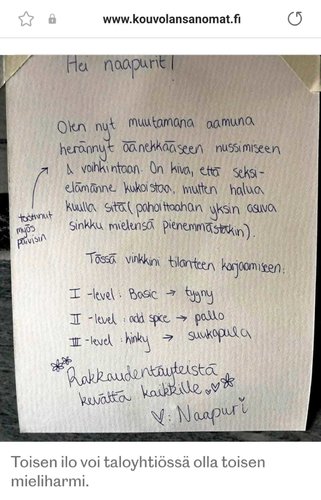 www.kouvolansanomat.fi
Hei naapurit!
Olen nyt muutamana aamuna
herännyt äänekkääseen nussimiseen
& voihkintaan. On kiva, että seksi-
elämänne kukoistaa, mutten halua
kuulla sitä (pahoittaahan yksin asuva
sinkku mielensä pienemmästäkin).
toiminut
myös
päivisin
Tässä vinkkini tilanteen korjaamiseen:
I -level: Basic → tyyny
II -level: add spice → pallo
III -level: kinky → suukapula
Rakkaudentäyteistä
kevättä kaikille
♡: Naapuri
Toisen ilo voi taloyhtiössä olla toisen
mieliharmi.